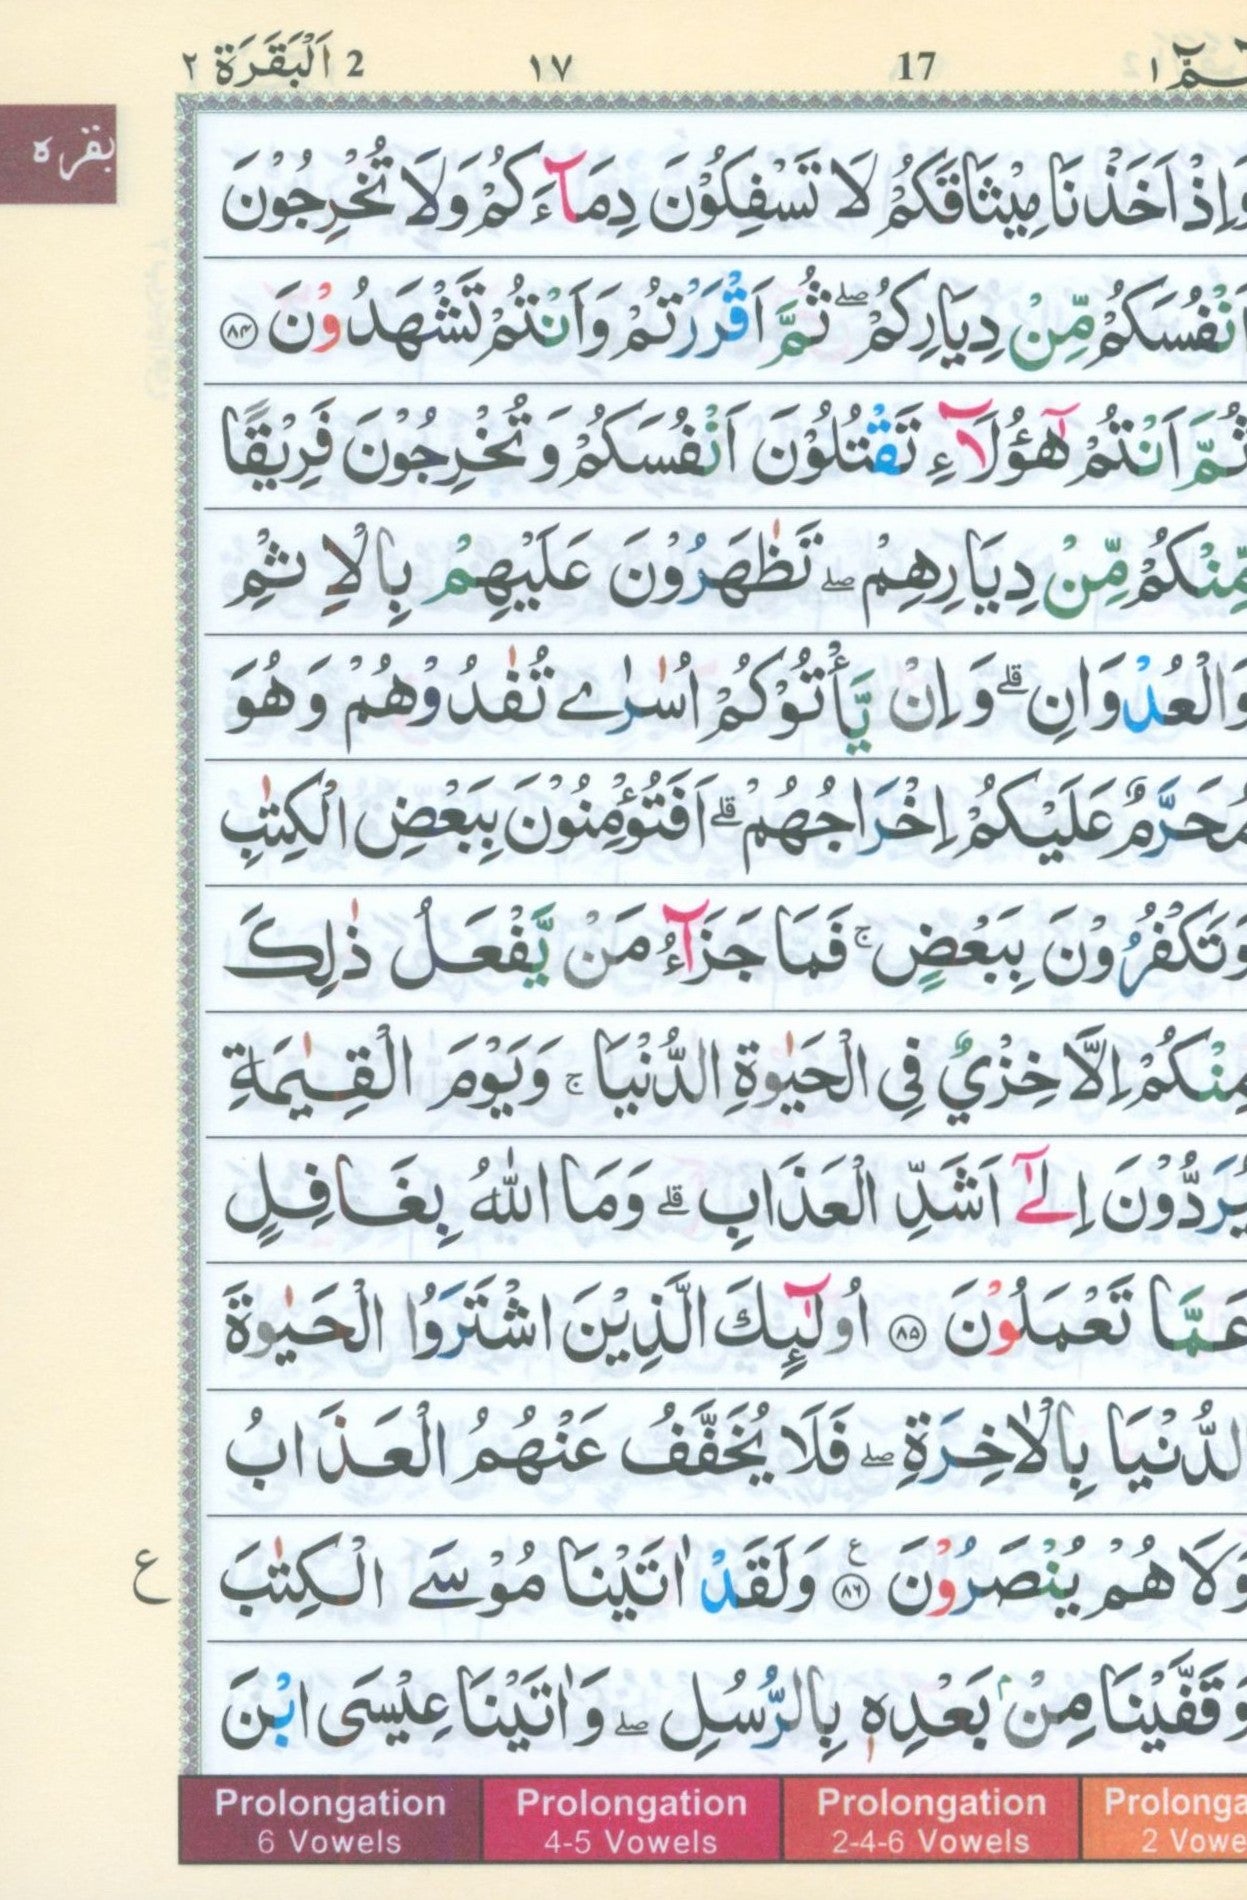 الٓمّٓ ١ 17 ١٧ 2 اَلْبَقَرَة ٢
بقره
وَاِذْ اَخَذْنَا مِيْثَاقَكُمْ لَا تَسْفِكُوْنَ دِمَآءَكُمْ وَلَا تُخْرِجُوْنَ
اَنْفُسَكُمْ مِّنْ دِيَارِكُمْ ۖ ثُمَّ اَقْرَرْتُمْ وَاَنْتُمْ تَشْهَدُوْنَ ﴿٨٤﴾
ثُمَّ اَنْتُمْ هٰٓؤُلَآءِ تَقْتُلُوْنَ اَنْفُسَكُمْ وَتُخْرِجُوْنَ فَرِيْقًا
مِّنْكُمْ مِّنْ دِيَارِهِمْ ۖ تَظٰهَرُوْنَ عَلَيْهِمْ بِالْاِثْمِ
وَالْعُدْوَانِ ۗ وَاِنْ يَّأْتُوْكُمْ اُسٰرٰے تُفٰدُوْهُمْ وَهُوَ
مُحَرَّمٌ عَلَيْكُمْ اِخْرَاجُهُمْ ۗ اَفَتُؤْمِنُوْنَ بِبَعْضِ الْكِتٰبِ
وَتَكْفُرُوْنَ بِبَعْضٍ ۚ فَمَا جَزَآءُ مَنْ يَّفْعَلُ ذٰلِكَ
مِنْكُمْ اِلَّا خِزْيٌ فِي الْحَيٰوةِ الدُّنْيَا ۚ وَيَوْمَ الْقِيٰمَةِ
يُرَدُّوْنَ اِلٰٓے اَشَدِّ الْعَذَابِ ۗ وَمَا اللّٰهُ بِغَافِلٍ
عَمَّا تَعْمَلُوْنَ ﴿٨٥﴾ اُولٰٓئِكَ الَّذِيْنَ اشْتَرَوُا الْحَيٰوةَ
الدُّنْيَا بِالْاٰخِرَةِ ۖ فَلَا يُخَفَّفُ عَنْهُمُ الْعَذَابُ
وَلَا هُمْ يُنْصَرُوْنَ ﴿٨٦﴾ ع وَلَقَدْ اٰتَيْنَا مُوْسَے الْكِتٰبَ ع
وَقَفَّيْنَا مِنْۢ بَعْدِهٖ بِالرُّسُلِ ۖ وَاٰتَيْنَا عِيْسَى ابْنَ
Prolongation Prolongation Prolongation Prolonga
6 Vowels 4-5 Vowels 2-4-6 Vowels 2 Vowe